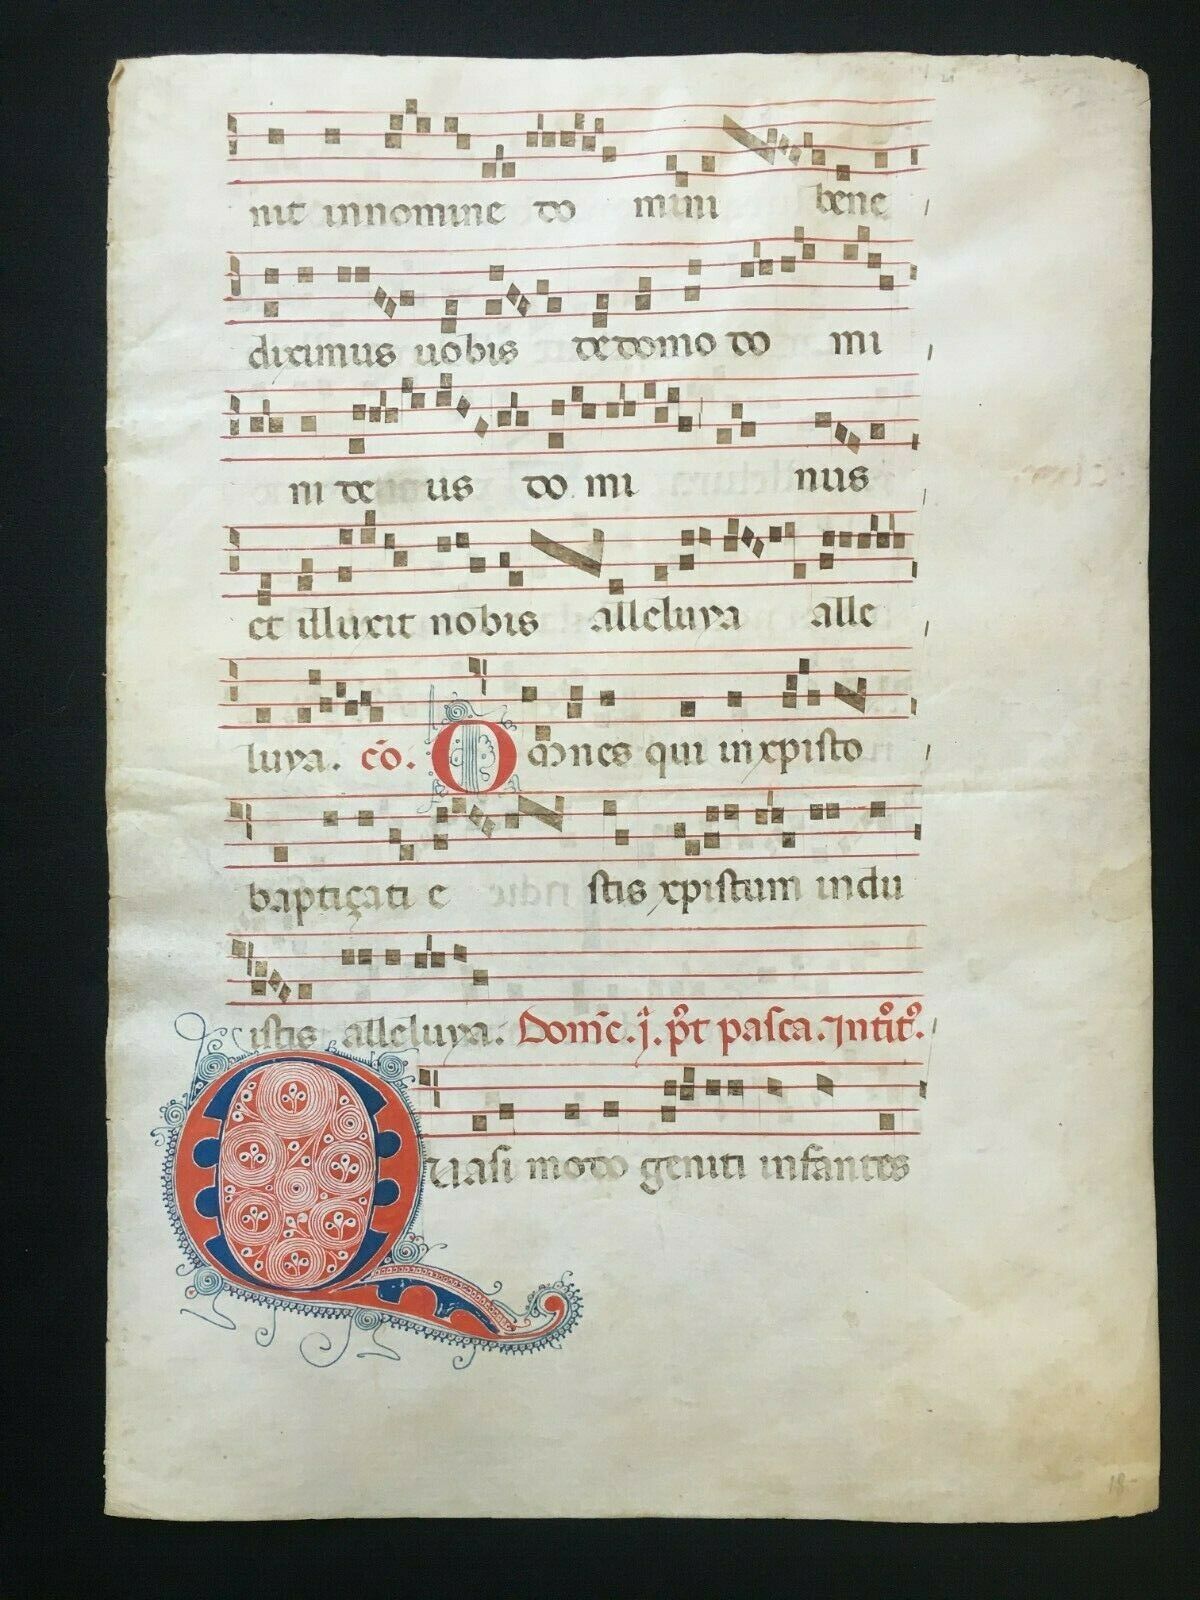 nit innomine do mini bene
diximus uobis dedomo do mi
ni de us do mi nus
et illuxit nobis alleluya alle
luya. cō. Omnes qui inxpisto
baptiçati e stis xpistum indu
istis alleluya. Domīc. j. pꝰt pasca. Intꝛoitꝰ.
Quasi modo geniti infantes
18